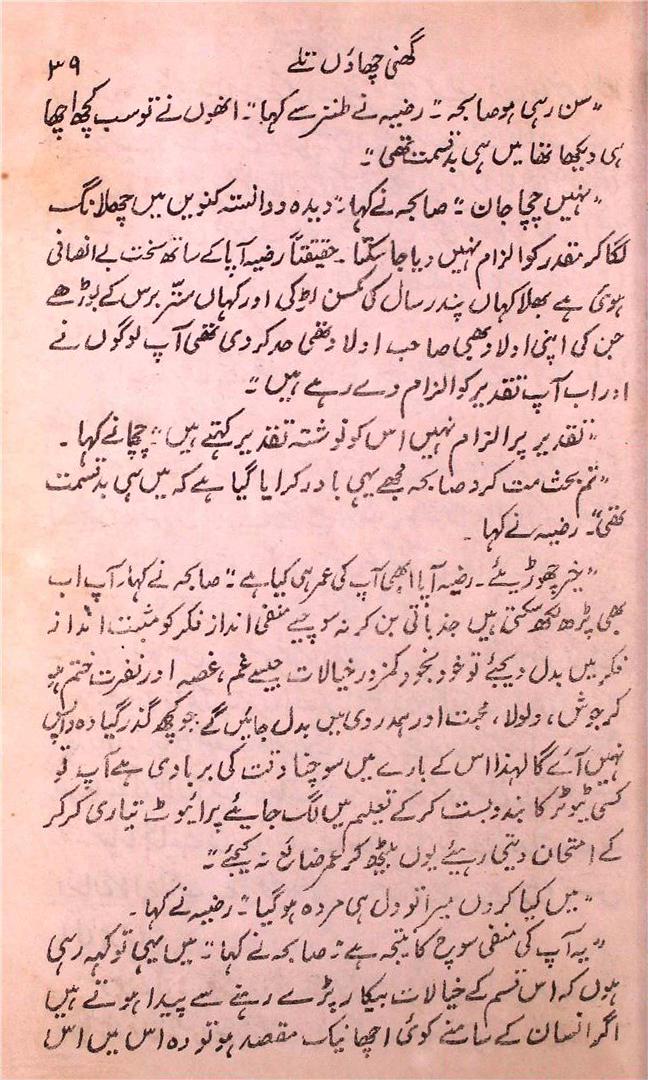 گھنی چھاؤں تلے ۳۹
”سن رہی ہو صابحہ۔“ رضیہ نے طنز سے کہا۔ ”انھوں نے تو سب کچھ اچھا
ہی دیکھا تھا میں ہی بدقسمت تھی“۔
”نہیں چچا جان“۔ صابحہ نے کہا۔ ”دیدہ و دانستہ کنویں میں چھلانگ
لگا کر مقدر کو الزام نہیں دیا جا سکتا۔ حقیقتاً رضیہ آپا کے ساتھ سخت بے انصافی
ہوئی ہے بھلا کہاں پندرہ سال کی کمسن لڑکی اور کہاں ستّر برس کے بوڑھے
جن کی اپنی اولاد بھی صاحب اولاد تھی حد کر دی تھی آپ لوگوں نے
اور اب آپ تقدیر کو الزام دے رہے ہیں“۔
”تقدیر پر الزام نہیں اس کو نوشتہ تقدیر کہتے ہیں“۔ چچا نے کہا۔
”تم بحث مت کرو صابحہ مجھے یہی باور کرایا گیا ہے کہ میں ہی بدقسمت
تھی“۔ رضیہ نے کہا۔
”خیر چھوڑیئے۔ رضیہ آپا ابھی آپ کی عمر ہی کیا ہے“۔ صابحہ نے کہا۔ آپ اب
بھی پڑھ لکھ سکتی ہیں جذباتی بن کر نہ سوچیے منفی انداز فکر کو مثبت انداز
فکر میں بدل دیجئے تو خود بخود کمزور خیالات جیسے غم، غصہ اور نفرت ختم ہو
کر جوش، ولولا، محبت اور ہمدردی میں بدل جائیں گے۔ جو کچھ گذر گیا وہ واپس
نہیں آئے گا لہذا اس کے بارے میں سوچنا وقت کی بربادی ہے آپ تو
کسی ٹیوٹر کا بندوبست کر کے تعلیم میں لگ جایئے پرائیوٹ تیاری کر کر
کے امتحان دیتی رہیئے یوں بیٹھ کر عمر ضائع نہ کیجئے“۔
”میں کیا کروں میرا تو دل ہی مردہ ہو گیا“۔ رضیہ نے کہا۔
”یہ آپ کی منفی سوچ کا نتیجہ ہے“۔ صابحہ نے کہا۔ ”میں یہی تو کہہ رہی
ہوں کہ اس قسم کے خیالات بیکار پڑے رہنے سے پیدا ہوتے ہیں
اگر انسان کے سامنے کوئی اچھا نیک مقصد ہو تو وہ اس میں اس